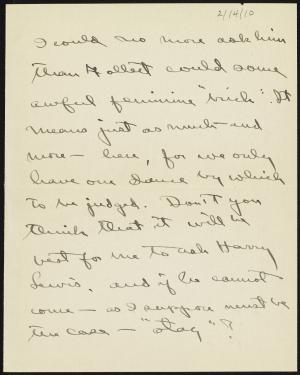 2/14/10
I could no more ask him
than Hollect could some
awful feminine "brick". It
means just as much - and
more - here, for we only
have one dance by which
to be judged. Don't you
think that it will be
best for me to ask Harry
Lewis, and if he cannot
come - as I suppose must be
the case - "stag"?